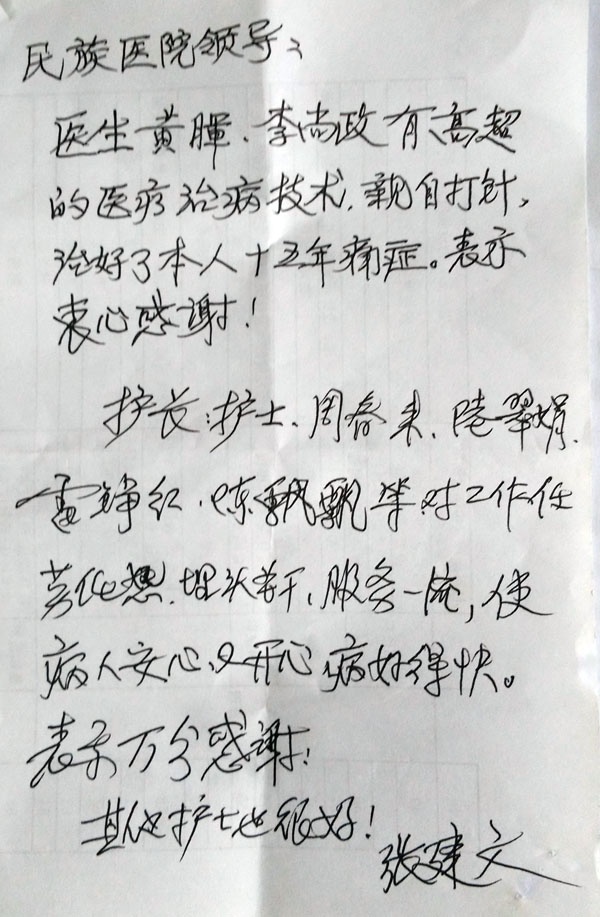 民族医院领导:
医生黄暉、李尚政有高超
的医疗治病技术,亲自打针,
治好了本人十五年痛症。表示
衷心感谢!
护长:护士、周春来、陆翠娟、
雷铮红、陈飘飘等对工作任
劳任怨、埋头苦干、服务一流,使
病人安心又开心病好得快。
表示万分感谢!
其他护士也很好!
张建文